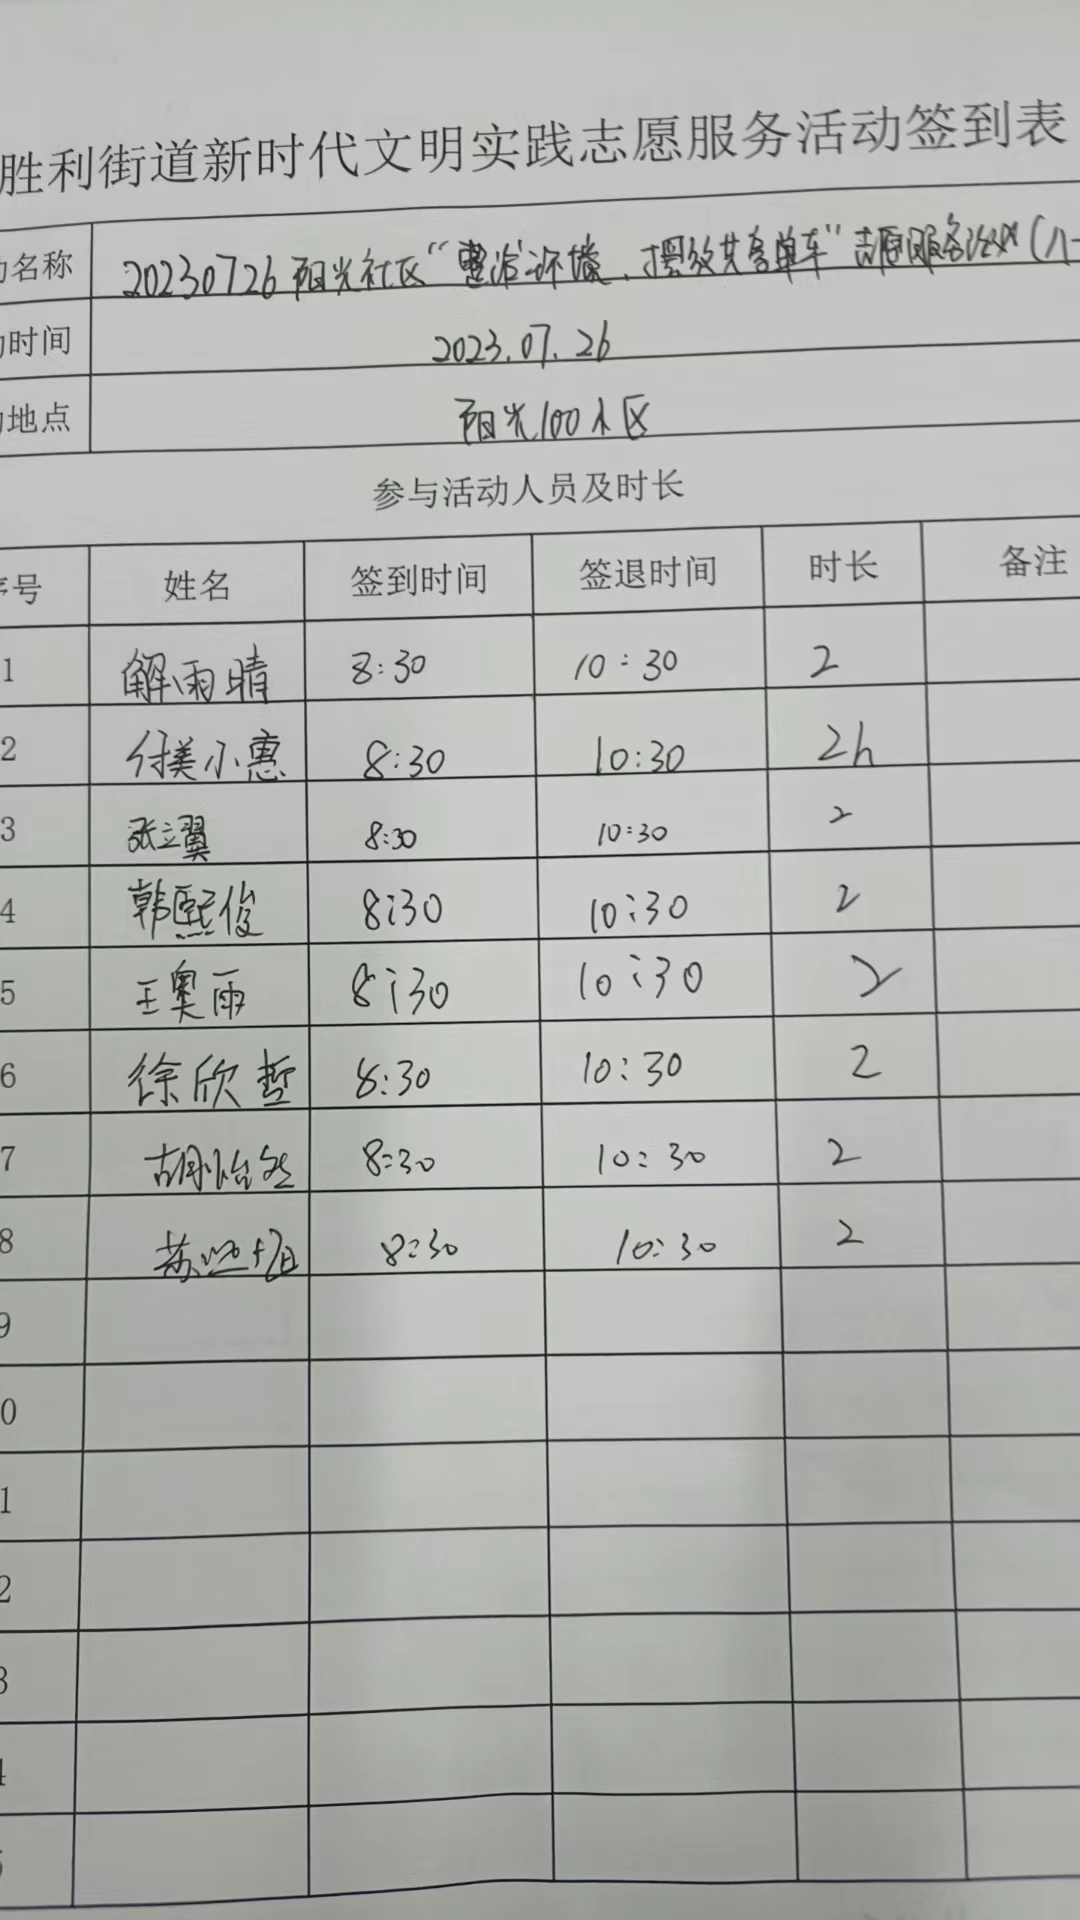 胜利街道新时代文明实践志愿服务活动签到表
名称 20230726阳光社区“整治环境、摆放共享单车”志愿服务活动(八一
时间 2023.07.26
地点 阳光100小区
参与活动人员及时长
序号 姓名 签到时间 签退时间 时长 备注
1 解雨晴 8:30 10:30 2
2 付美小惠 8:30 10:30 2h
3 张立翼 8:30 10:30 2
4 韩熙俊 8:30 10:30 2
5 王奥雨 8:30 10:30 2
6 徐欣哲 8:30 10:30 2
7 胡怡然 8:30 10:30 2
8 苏 8:30 10:30 2
9
0
1
2
3
4
5